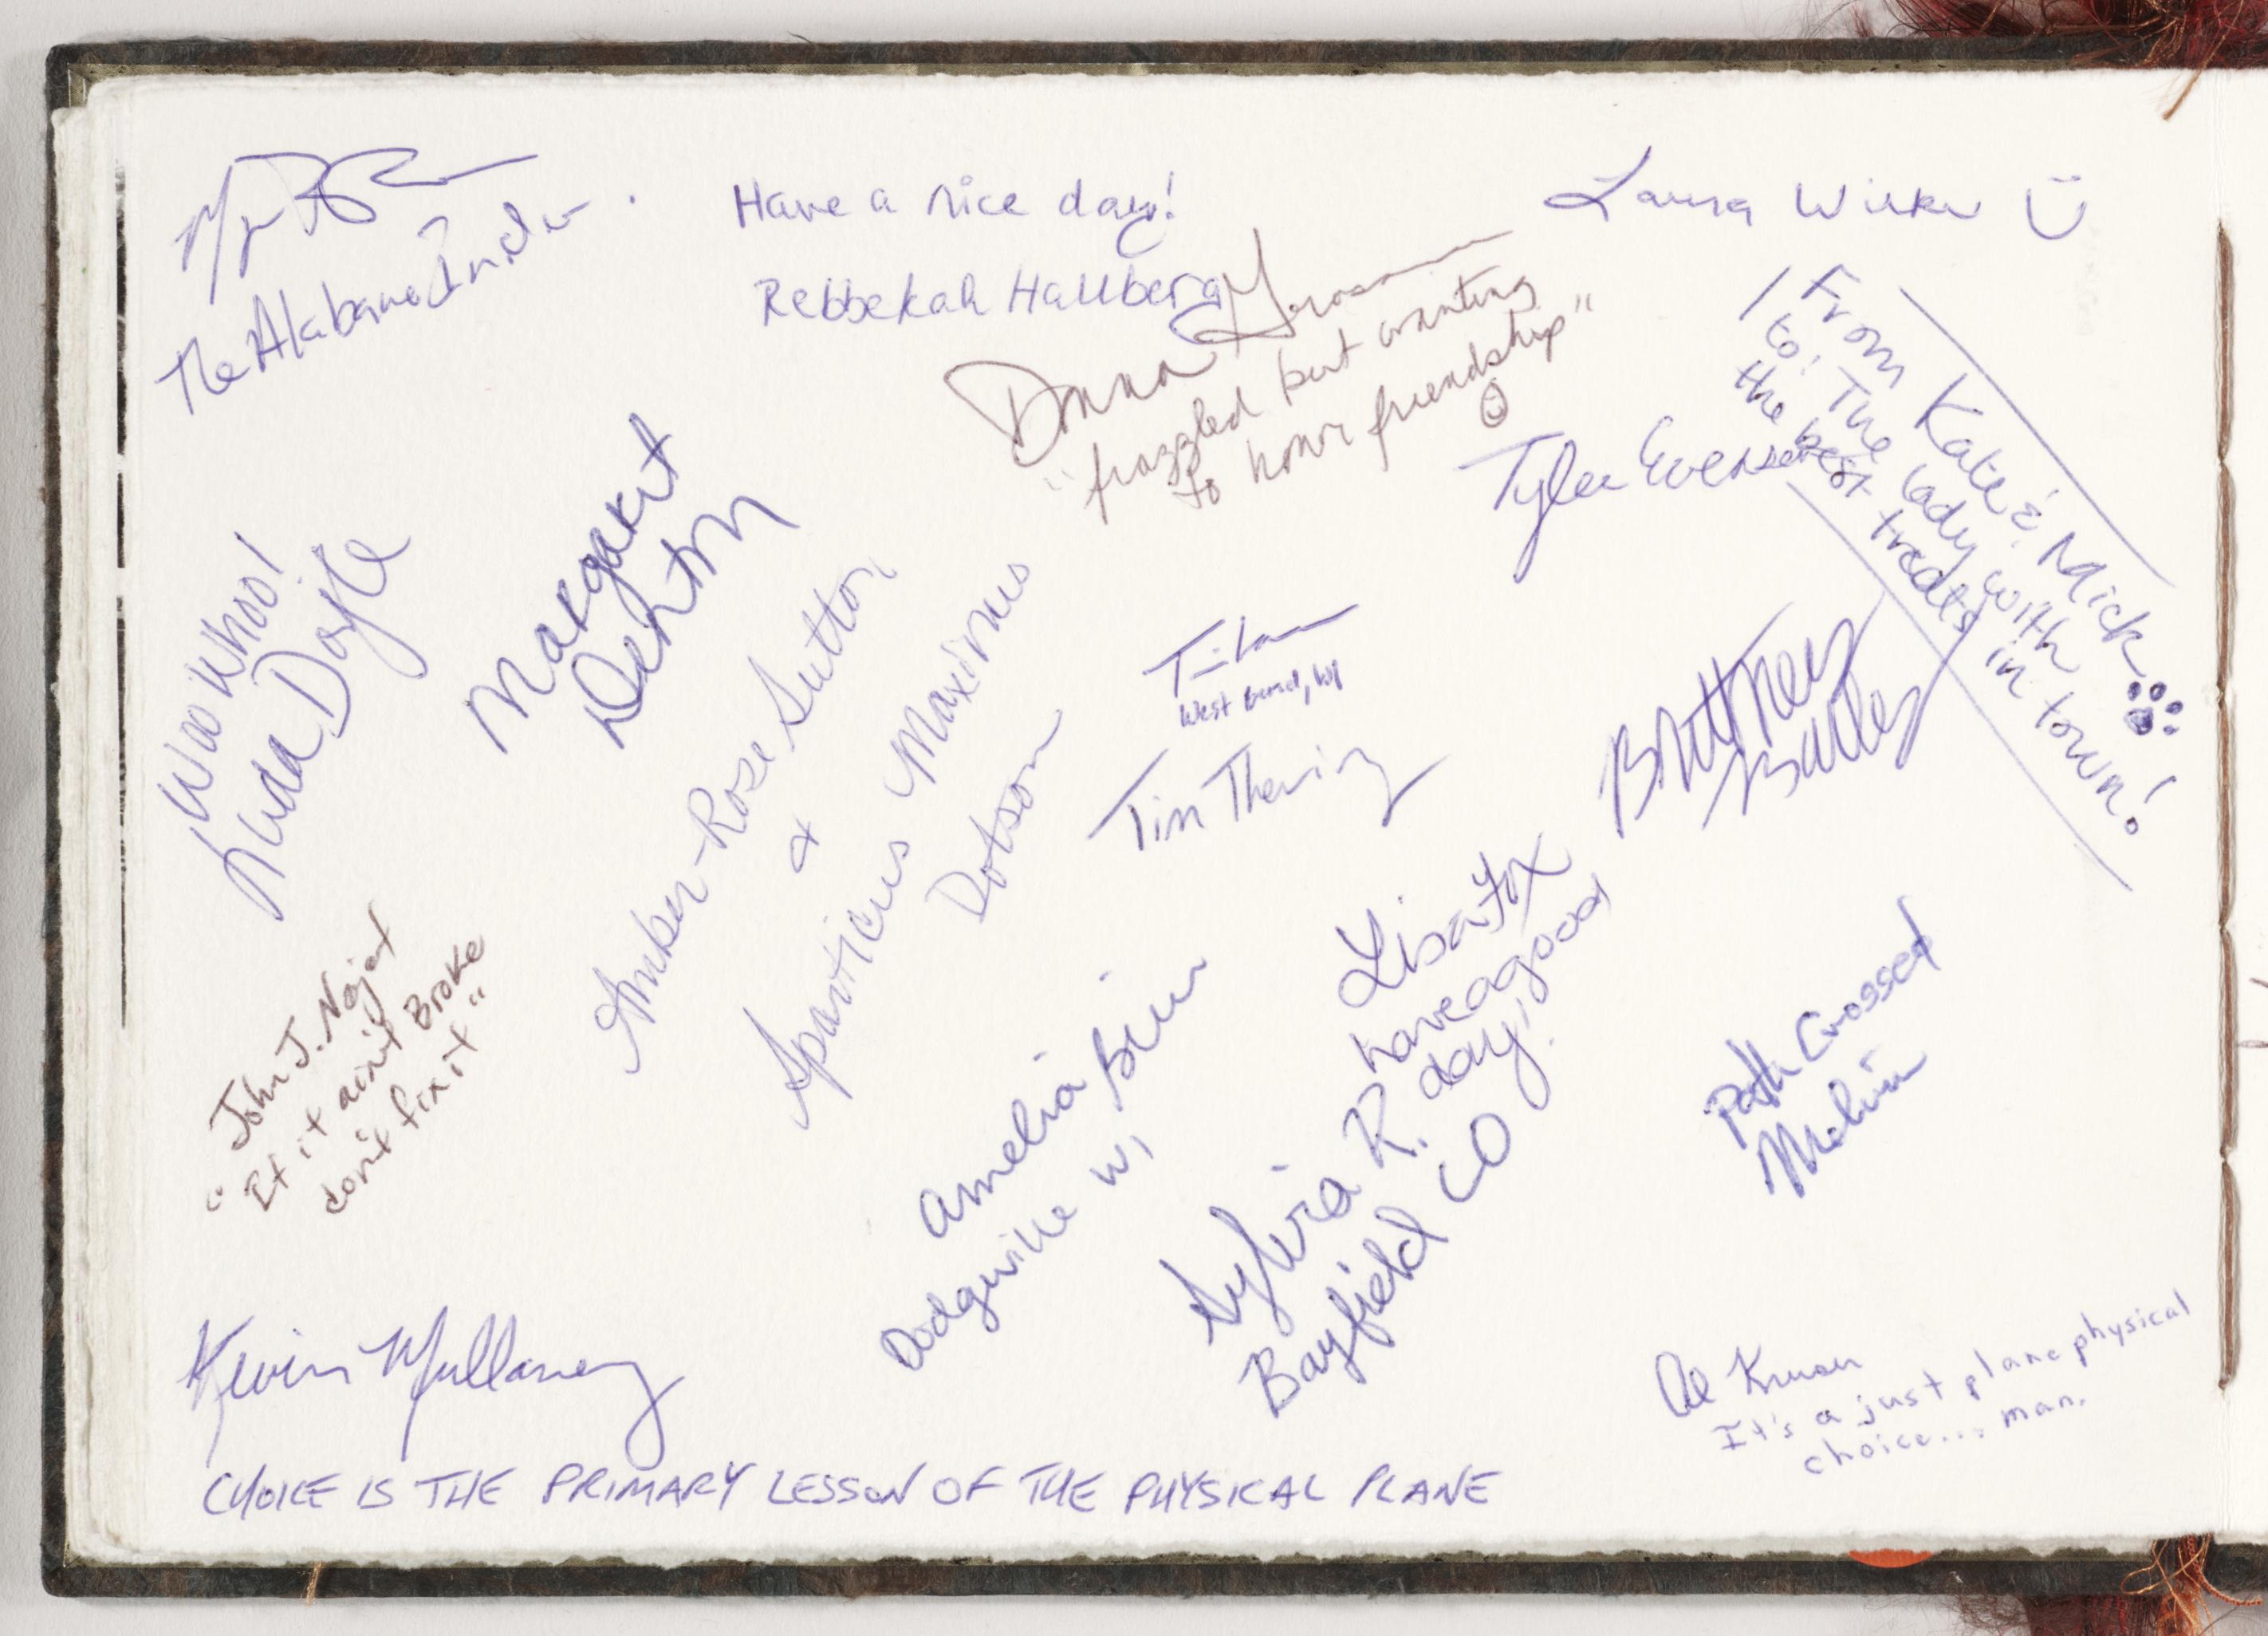 The Alabama
Have a nice day!
Rebbekah Hallberg
Laura
Donna
"frazzled but wanting
to honor friendship"
From Kate & Mick
to: The lady with
the best treats in town!
Tyler Evensen
Woo Whoo!
Linda Doyle
Margaret
Denton
Amber-Rose Sutton
&
Sparticus Maximus
Dotson
West Bend, WI
Tim Thering
Brittney
John J. Najat
"If it ain't Broke
don't fix it"
Amelia
Dodgeville WI
Lisa Fox
have a good
day!
Sylvia R.
Bayfield CO
Path Crossed
Melvin
Kevin Mullaney
CHOICE IS THE PRIMARY LESSON OF THE PHYSICAL PLANE
Al
It's a just plane physical
choice... man.